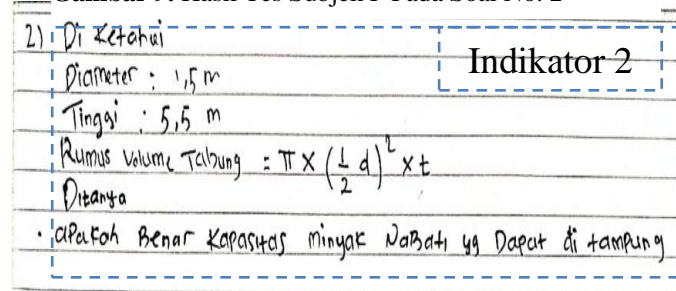 2) Di Ketahui
Indikator 2
Diameter : 1,5 m
Tinggi : 5,5 m
Rumus Volume Tabung = π × (1/2 d)² × t
Ditanya
• apakah Benar Kapasitas minyak NaBati yg Dapat di tampung